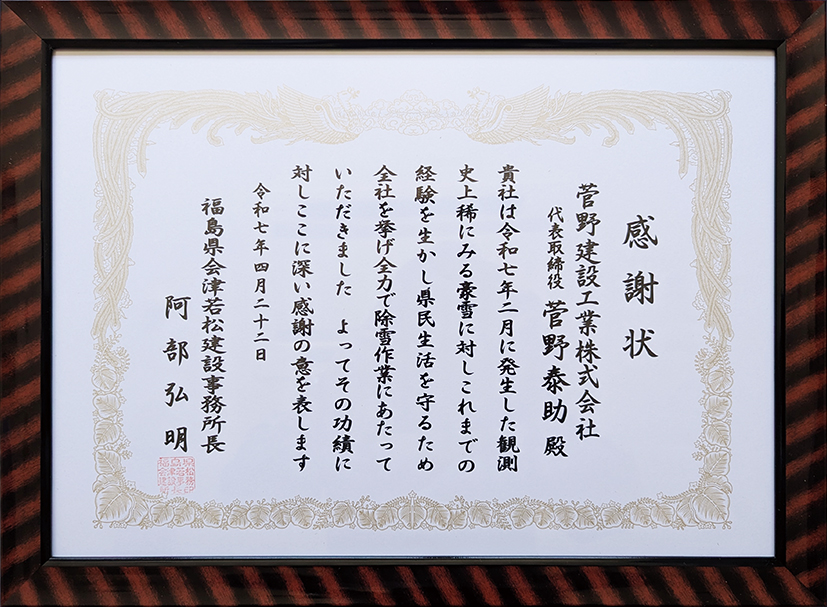 感謝状
菅野建設工業株式会社
代表取締役 菅野泰助 殿
貴社は令和七年二月に発生した観測
史上稀にみる豪雪に対しこれまでの
経験を生かし県民生活を守るため
全社を挙げ全力で除雪作業にあたって
いただきました よってその功績に
対しここに深い感謝の意を表します
令和七年四月二十二日
福島県会津若松建設事務所長
阿部弘明